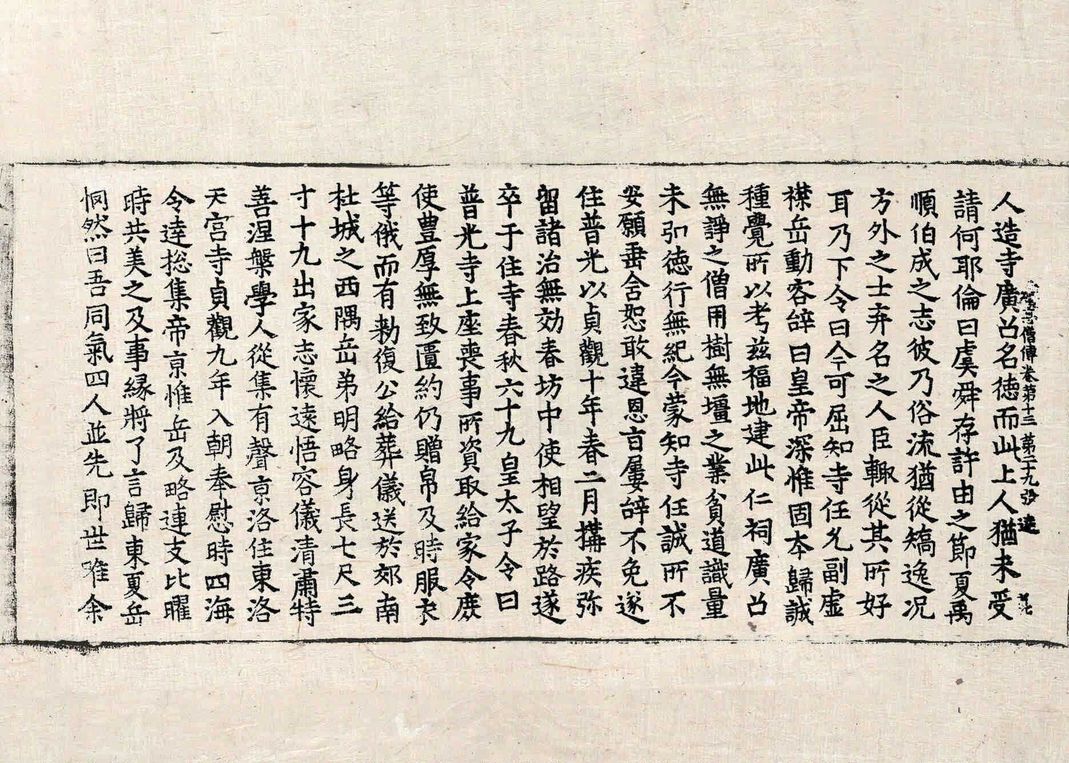 人造寺廣召名德而此上人猶未受
續高僧傳卷第十三 第二十九張 達
請何耶倫曰虞舜存許由之節夏禹
順伯成之志彼乃俗流猶從矯逸况
方外之士弃名之人臣輙從其所好
耳乃下令曰今可屈知寺任允副虛
襟岳動容辝曰皇帝深惟固本歸誠
種覺所以考茲福地建此仁祠廣召
無諍之僧用樹無壇之業貧道識量
未弘德行無紀今蒙知寺任誠所不
安願垂含恕敢違恩旨屢辝不免遂
住普光以貞觀十年春二月搆疾弥
留諸治無効春坊中使相望於路遂
卒于住寺春秋六十九皇太子令曰
普光寺上座喪事所資取給家令庻
使豊厚無致匱約仍贈帛及時服衣
等俄而有勑復公給葬儀送於郊南
杜城之西隅岳弟明略身長七尺三
寸十九出家志懷遠悟容儀清肅特
善涅槃學人從集有聲京洛住東洛
天宮寺貞觀九年入朝奉慰時四海
令達揔集帝京惟岳及略連支比曜
時共美之及事緣將了言歸東夏岳
恫然曰吾同氣四人並先即世唯余